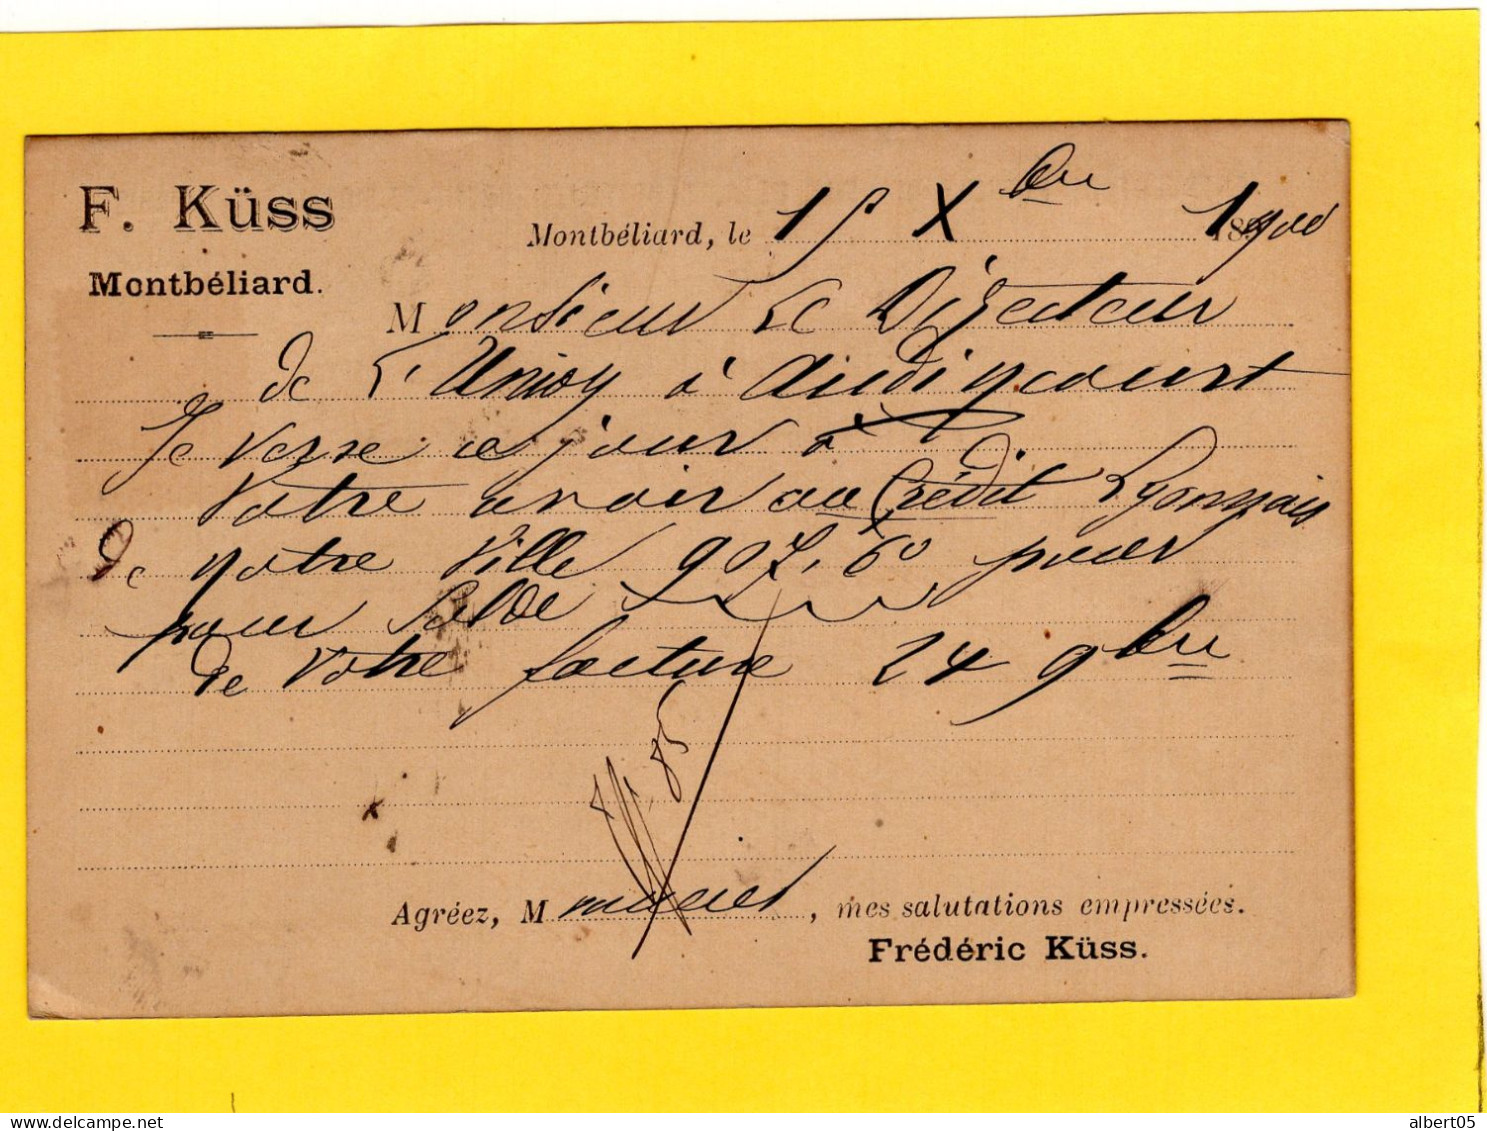 F. Küss
Montbéliard.
Montbéliard, le 15 Xbre 1900
Monsieur Le Directeur
de L'Union à Audincourt
Je verse ce jour à
Votre avoir au Crédit Lyonnais
de notre Ville 907,60 pour
pour solde
de Votre facture 24 9bre
85
Agréez, M, mes salutations empressées.
Frédéric Küss.
albert05